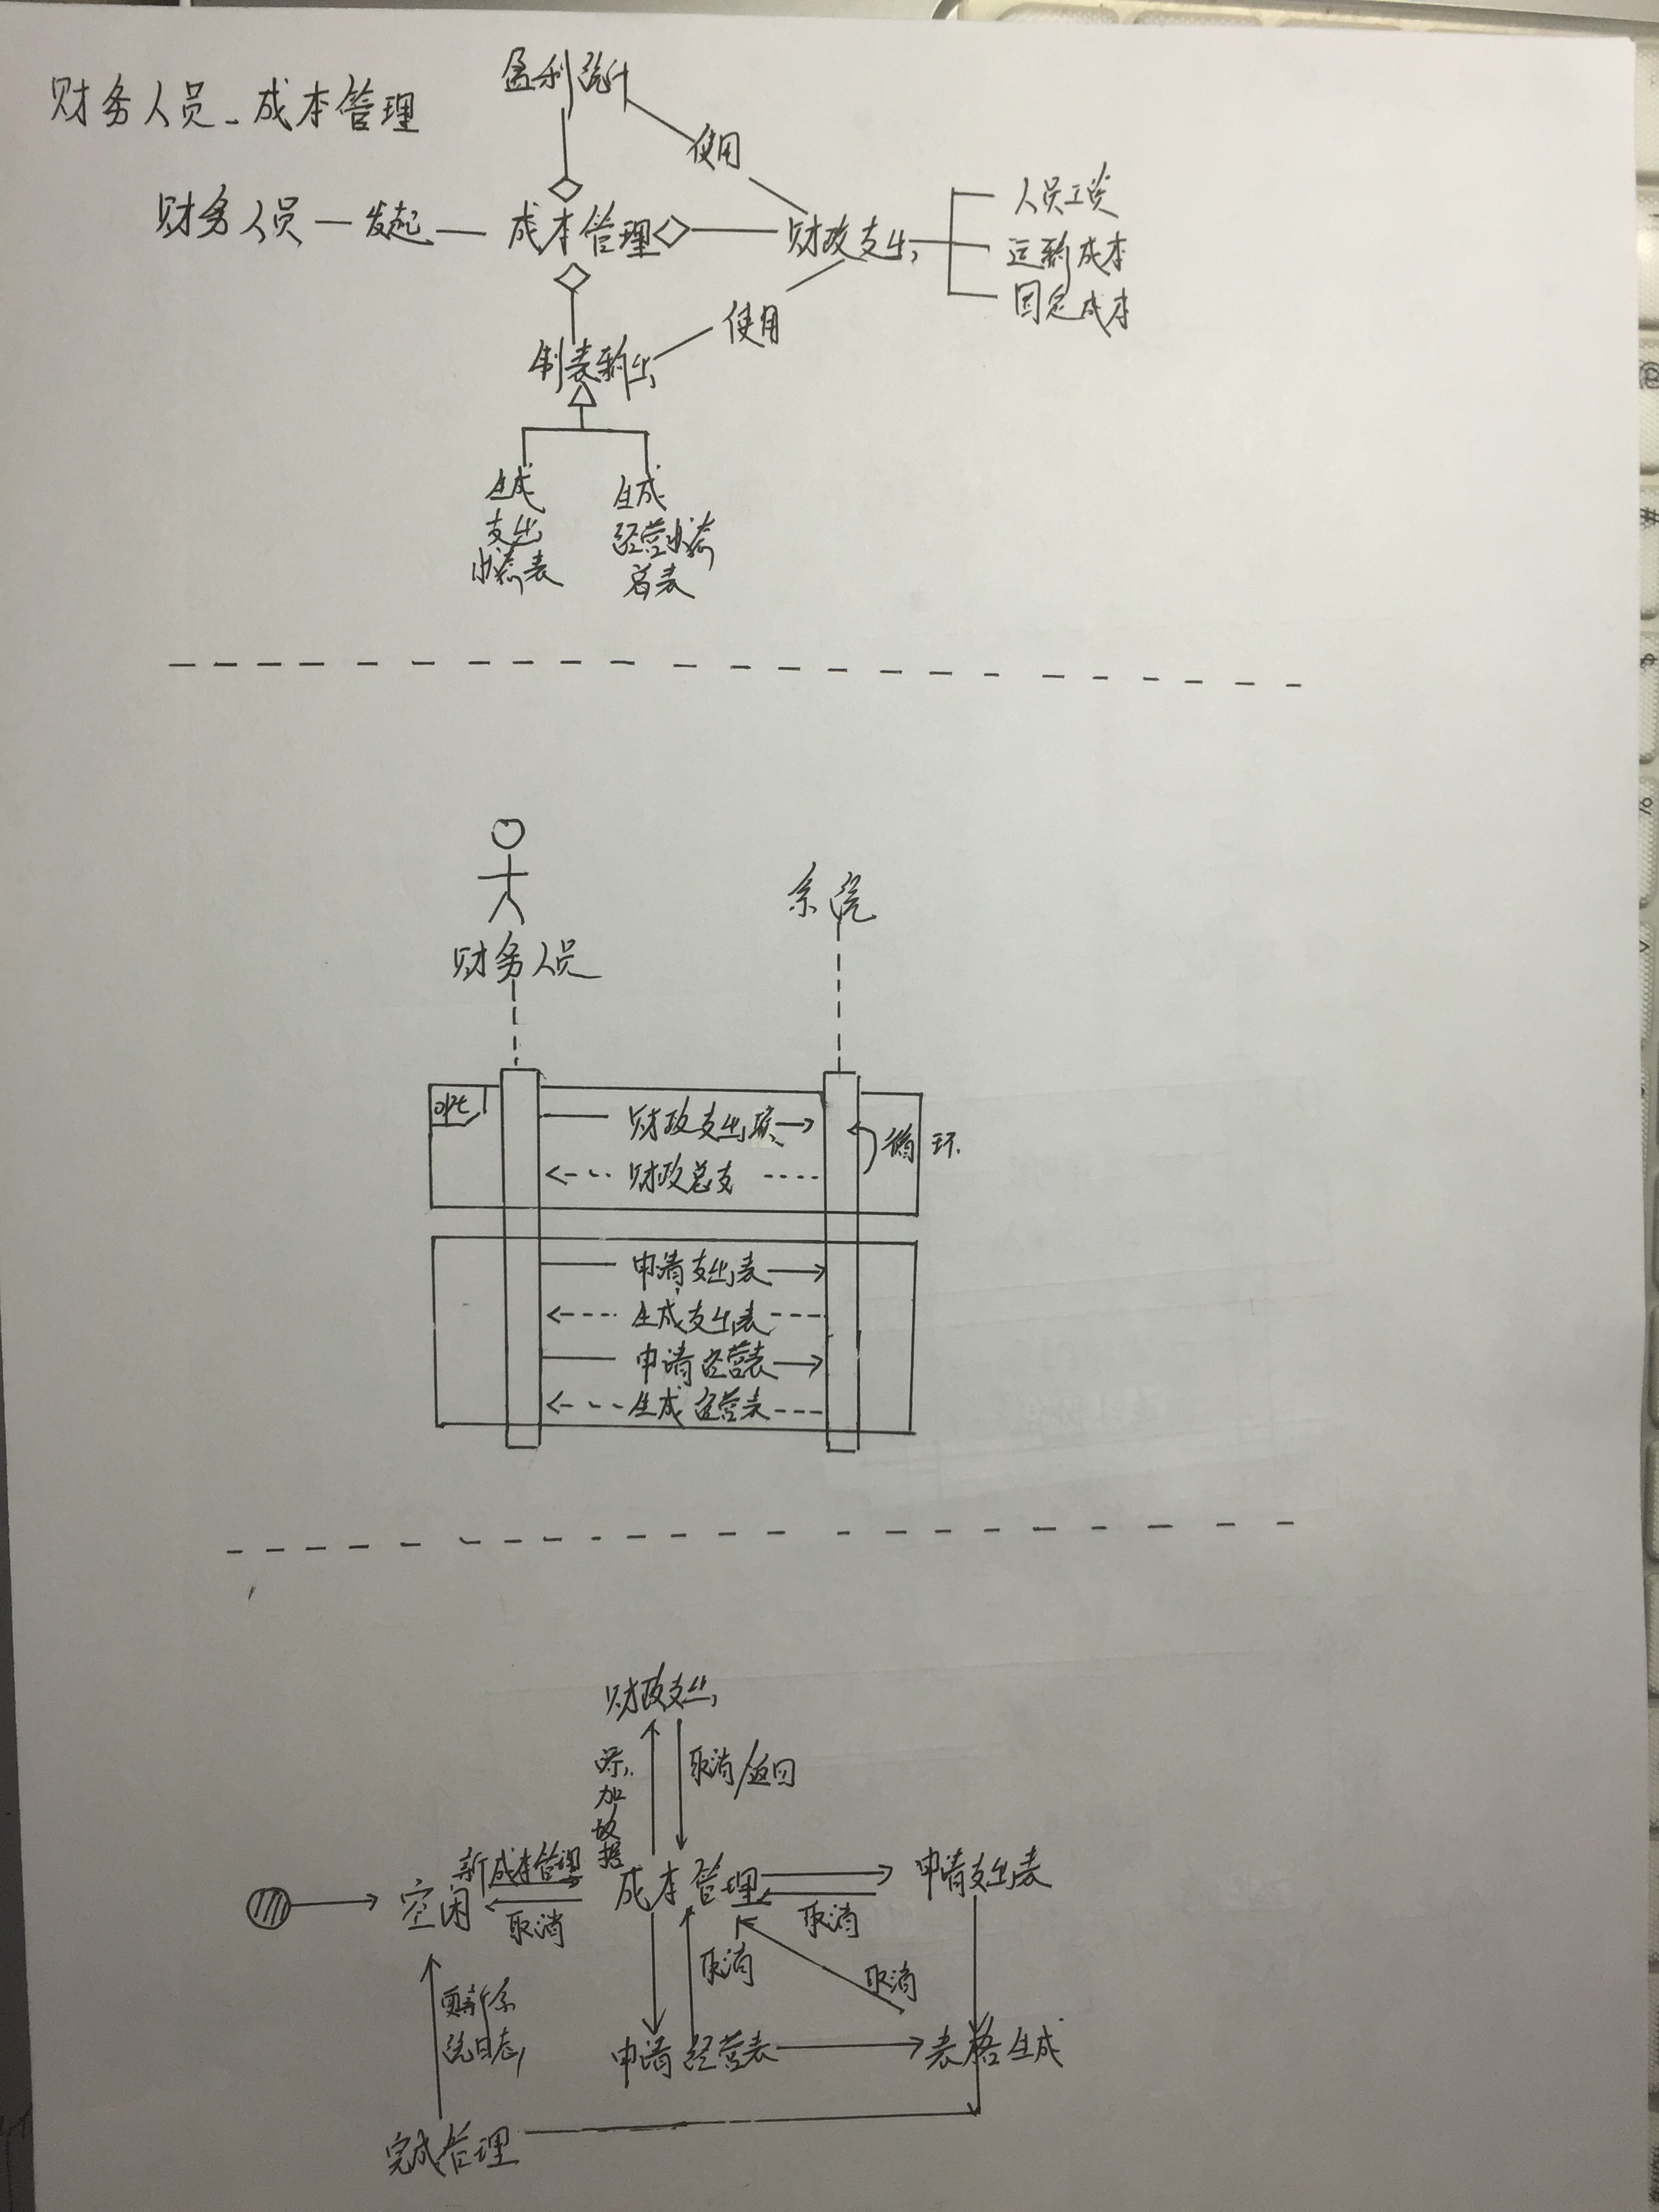 财务人员-成本管理
盈利统计
使用
财务人员 — 发起 — 成本管理
财政支出
人员工资
运输成本
固定成本
使用
制表输出
生成
支出
表
生成
经营
总表
财务人员
系统
opt
财政支出
循环
财政总支
申请支出表
生成支出表
申请经营表
生成经营表
财政支出
添加数据
取消/返回
空闲
新成本管理
取消
成本管理
取消
申请支出表
取消
取消
更新系
统日志
申请经营表
表格生成
完成管理